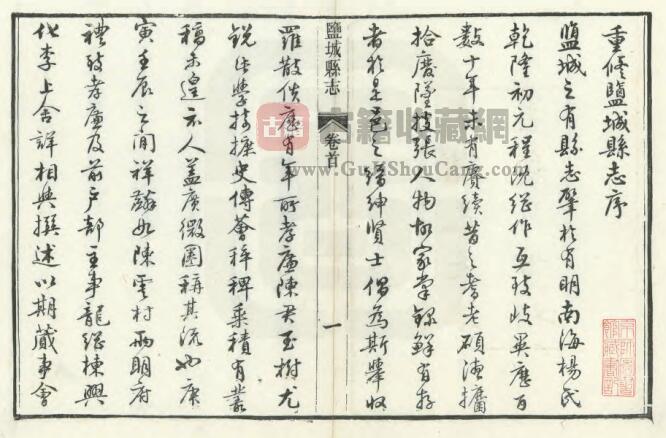 重修鹽城縣志序
鹽城之有縣志肇於有明南海楊氏
乾隆初元程沈繼作互歧異歷百
數十年未有賡續昔之耆老碩德攟
拾廢墜張人物家掌錄鮮有存
者於是邑之縉紳賢士倡為斯舉收
鹽城縣志
卷首
一
羅散佚歷有年所孝廉陳君玉樹尤
銳此學捃摭史傳薈稡稗乘積有叢
稿未遑示人蓋廣微圈稱其流也庚
寅壬辰之間祥陳雲村兩明府
禮孝廉及前戶部主事龍繼棟興
化李上舍詳相與撰述以期蕆事會
古籍收藏网
www.GuJiShouCang.com